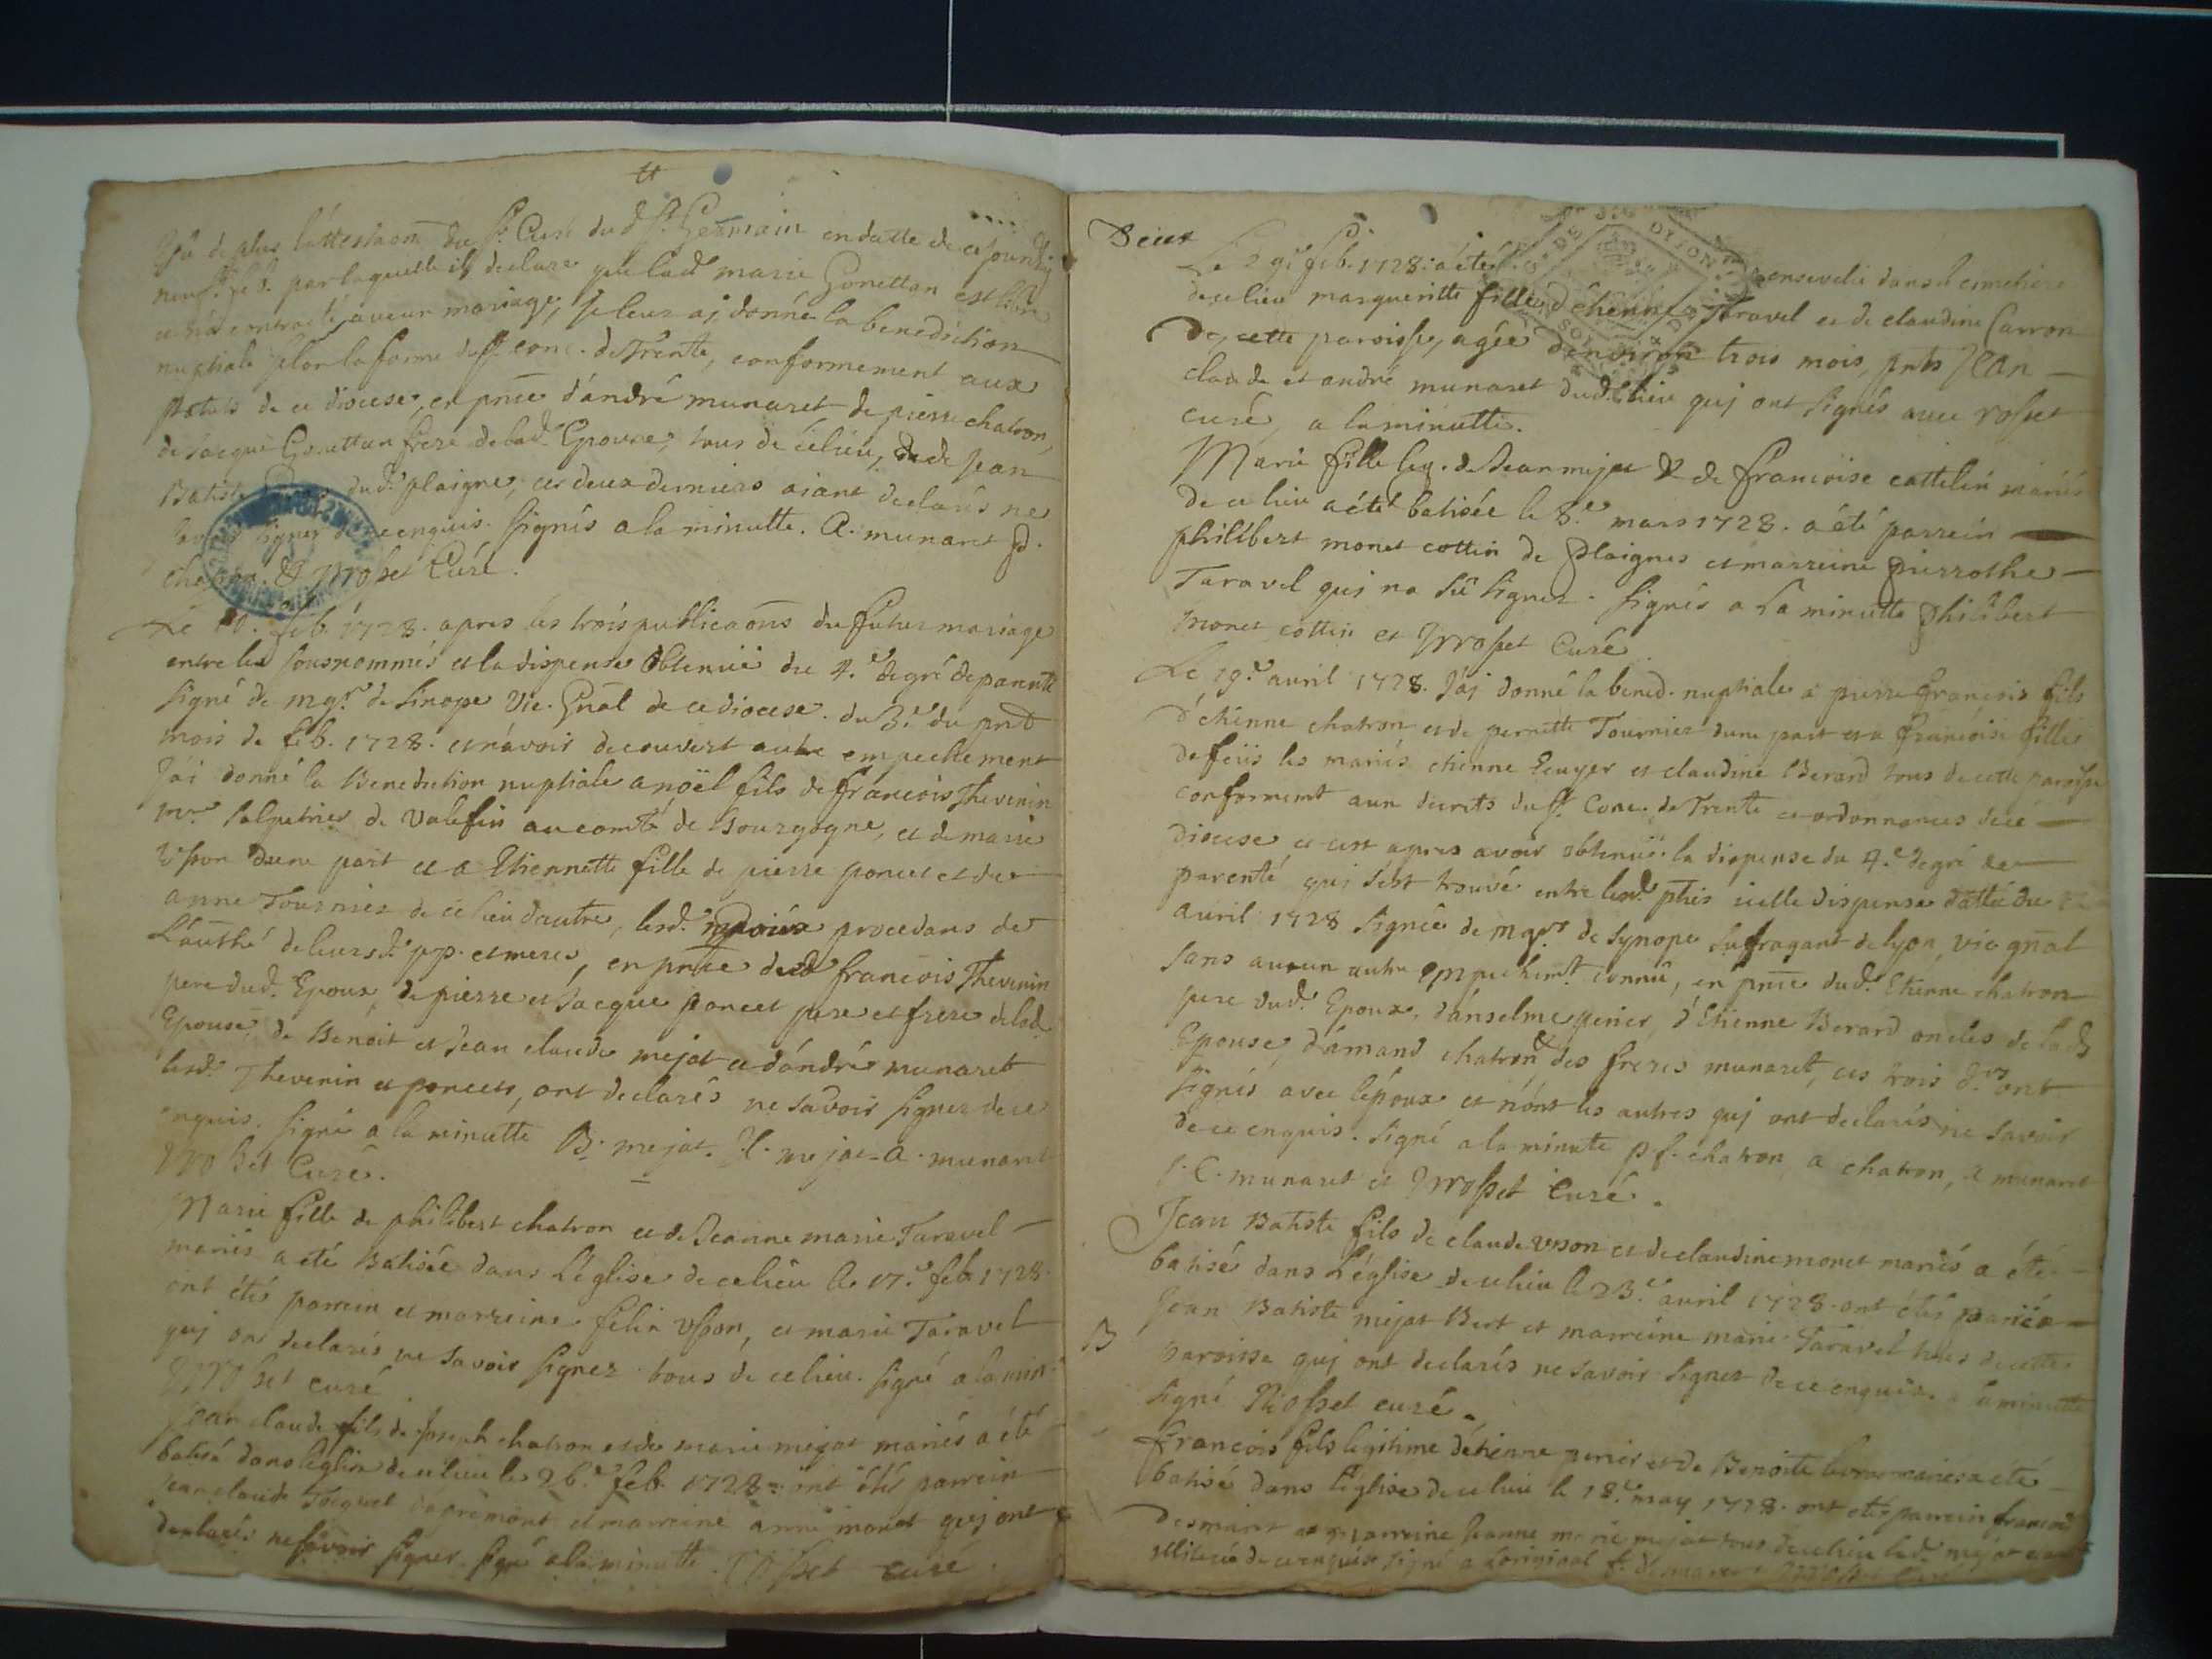 Vu de plus l'attestaôn du Sr. Curé dud. St. Germain en datte de ce jourdhuy
neuf. feb. par laquelle il declare que lad. marie Gonettan est libre
et n'a contracté aucun mariage, je leur aj donné la benediction
nuptiale selon la forme du St. conc. de Trente, conformement aux
statuts de ce diocese, en pnce d'andré munaret de pierre chatron,
de Jacque Gonettan frere de lad. Epouse, tous de celieu, de Jean
Batiste dud. plaigne, ces deux derniers aiant declarés ne
savoir signer de ce enquis. signés a la minutte. a. munaret p.
chatron. & Rosset Curé.
Le 10. feb. 1728. apres les trois publicaôns du futur mariage
entre les sousnommés et la dispense obtenüe du 4.e degré de parenté
signé de mgr. de Sinope Vic. Gnâl de ce diocese. du 3.e du pnt
mois de feb. 1728. et n'avoir decouvert autre empechement
J'ai donné la Benediction nuptiale a noël fils de françois Thevenin
mr. salpetrier de Valefin au comté de Bourgogne, et de marie
Vsson dune part et a Etiennette fille de pierre poncet et de
anne Tournier de ce lieu dautre, lesd. epoux procedans de
L'authé de leursd. pp. et meres, en pnce dud. françois Thevenin
pere dud. Epoux, de pierre et Jacque poncet pere et frere de lad.
Epouse, de Benoit et Jean claude mejat et d'andré munaret
lesd. Thevenin et poncets, ont declarés ne savoir signer de ce
enquis. signé a la minutte B. mejat. J. C. mejat. a. munaret
Rosset Curé.
Marie fille de philibert chatron et de Jeanne marie Taravel
mariés a été Batisée dans L'église de celieu le 17.e feb. 1728.
ont étés parrein et marreine. felin Vsson, et marie Taravel
quj on declarés ne savoir signer. tous de celieu. signé a la min.
Rosset curé
Jean claude fils de Joseph chatron et de marie mejat mariés a été
batisé dans leglise de celieu le 26.e feb. 1728. ont étés parrein
Jean claude Tocquet dapremont et marreine anne monet quj ont
declarés ne savoir signer. signé a la minutte. Rosset curé.
Deux
Le 29e feb. 1728. a été ensevelie dans le cimetiere
de ce lieu margueritte fille d'étienne Taravel et de claudine Carron
de cette paroisse, agée d'environ trois mois, pnts Jean
claude et andré munaret dud. lieu quj ont signés avec rosset
curé, a la minutte.
Marie fille leg. de Jean mejat & de francoise cattelin mariés
de ce lieu a été batisée le 8.e mars 1728. a été parrein
philibert monet cottin de plaignes et marreine pierrothe
Taravel quj na sû signer. signés a la minutte philibert
monet cottin et Rosset Curé
Le 19.e avril 1728. J'aj donné la bened. nuptiale a pierre françois fils
d'étienne chatron et de pernette Tournier dune part et a françoise fille
de feüs les mariés etienne Ecuyer et claudine Berard tous de cette paroisse
conformemt aux decrets du St. Conc. de Trente et ordonnances de ce
diocese, et cest apres avoir obtenüe la dispense du 4.e degré de
parenté qui sest trouvé entre lesd. pties icelle dispense dattée du
avril 1728 signée de mgr. de Synope sufragant de lyon, vic gnâl
sans aucun autre empechemt. connû, en pnce dud. Etienne chatron
pere dud. Epoux, d'anselme perier, d'Etienne Berard oncles de lad.
Epouse, d'amand chatron des freres munaret, ces trois d.rs ont
signés avec lépoux et nont les autres quj ont declarés ne savoir
de ce enquis. signé a la minute p f. chatron, a chatron, a munaret
J. C. munaret et Rosset Curé.
Jean Batiste fils de claude vsson et de claudine monet mariés a été
batisé dans L'église de celieu le 23.e avril 1728. ont étés parréin
B
Jean Batiste mejat Bert et marreine marie Taravel tous de cette
paroisse quj ont declarés ne savoir signer de ce enquis. a la minutte
signé Rosset curé.
François fils legitime d'étienne perier et de Benoite mariés a été
batisé dans l'église de celieu le 18.e may 1728. ont étés parrein francois
Desmaret et marreine Jeanne marie mejat tous de celieu lad. mejat
illiterée de ce enquise signé a Loriginal f. desmaret Rosset Curé